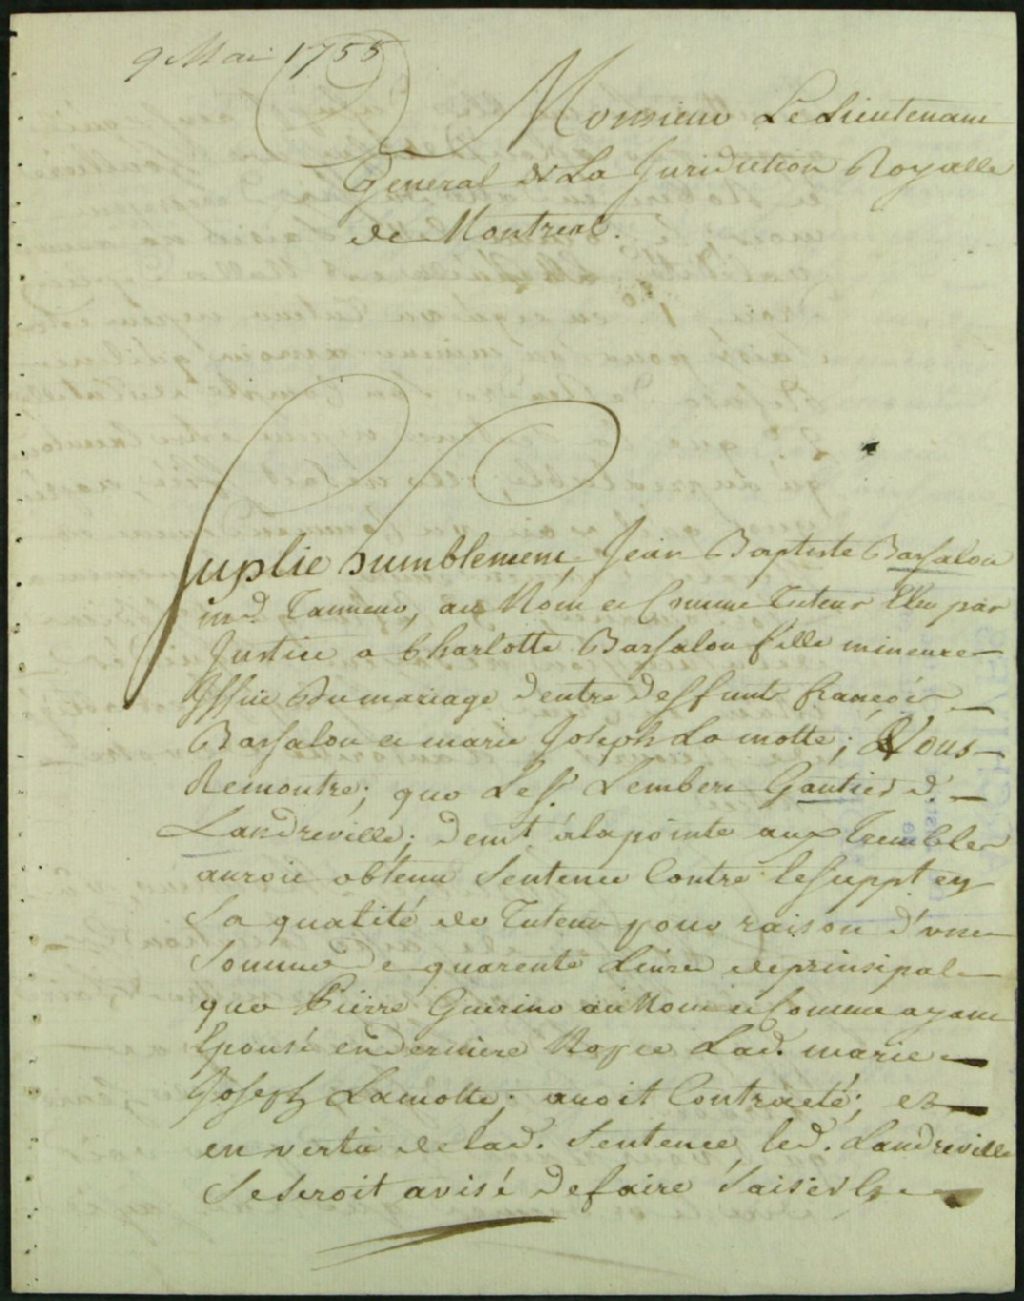 9 Mai 1755
Monsieur Le Lieutenant
General de La Juridiction Royalle
de Montreal.
Suplie humblement, Jean Baptiste Barsalou
md. Tanneur, au Nom et Comme Tuteur Eleu par
Justice a Charlotte Barsalou fille mineure
Issüe du mariage d'entre deffunt françois
Barsalou et marie Joseph La motte; Vous
Remontre; que Le Sr. Lembert Gautier d.
Landreville; demt. à la pointe aux Trembles
auroit obtenu Sentence Contre le Supplt en
Sa qualité de Tuteur pour raison d'une
Somme de quarente Livres de prinsipal
que Pierre Guerino au Nom et Comme ayant
Epousé en derniere Nopce Lad. marie
Joseph Lamotte; avoit Contracté; et
en vertu de lad. Sentence led. Landreville
Se Seroit avisé de faire Saisir